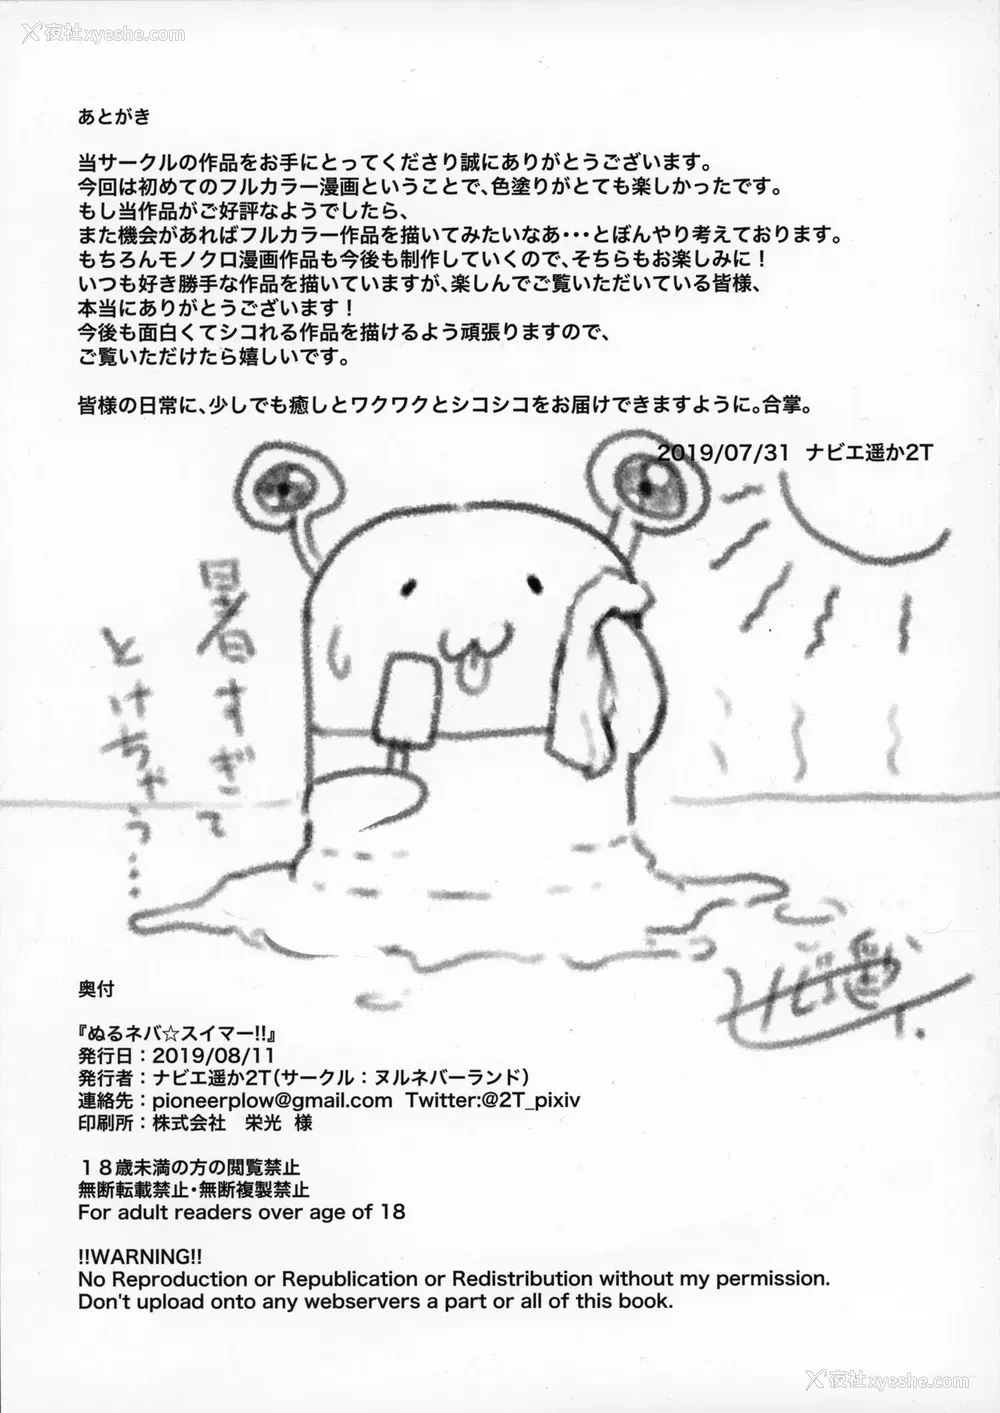 夜社xyeshe.com
あとがき
当サークルの作品をお手にとってくださり誠にありがとうございます。
今回は初めてのフルカラー漫画ということで、色塗りがとても楽しかったです。
もし当作品がご好評なようでしたら、
また機会があればフルカラー作品を描いてみたいなあ・・・とぼんやり考えております。
もちろんモノクロ漫画作品も今後も制作していくので、そちらもお楽しみに！
いつも好き勝手な作品を描いていますが、楽しんでご覧いただいている皆様、
本当にありがとうございます！
今後も面白くてシコれる作品を描けるよう頑張りますので、
ご覧いただけたら嬉しいです。
皆様の日常に、少しでも癒しとワクワクとシコシコをお届けできますように。合掌。
2019/07/31 ナビエ遥か2T
暑すぎて
とけちゃう…
奥付
『ぬるネバ☆スイマー!!』
発行日：2019/08/11
発行者：ナビエ遥か2T（サークル：ヌルネバーランド）
連絡先：pioneerplow@gmail.com Twitter:@2T_pixiv
印刷所：株式会社　栄光 様
１８歳未満の方の閲覧禁止
無断転載禁止・無断複製禁止
For adult readers over age of 18
!!WARNING!!
No Reproduction or Republication or Redistribution without my permission.
Don't upload onto any webservers a part or all of this book.
夜社xyeshe.com